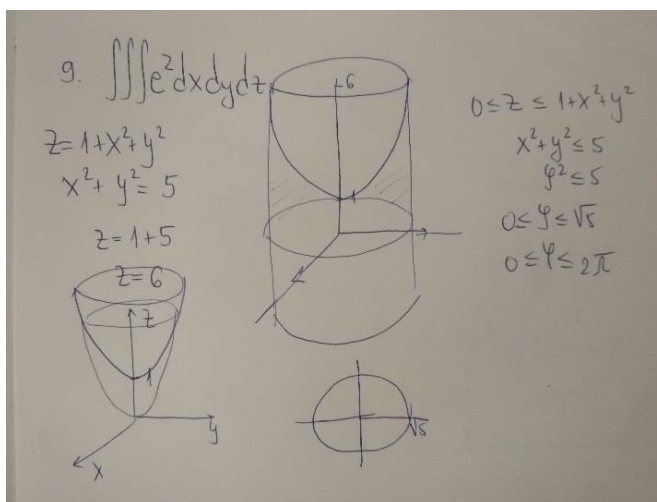 9. ∭e^z dxdydz
z=1+x²+y²
x²+y²=5
z=1+5
z=6
z
1
y
x
6
1
√5
0≤z≤1+x²+y²
x²+y²≤5
ρ²≤5
0≤ρ≤√5
0≤φ≤2π